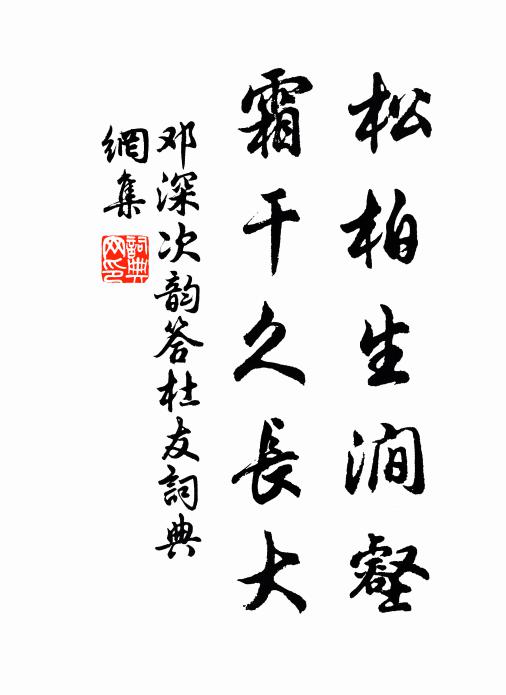 松柏生澗壑
霜干久長大
邓深次韵答杜友詞典
網集
詞典
网印